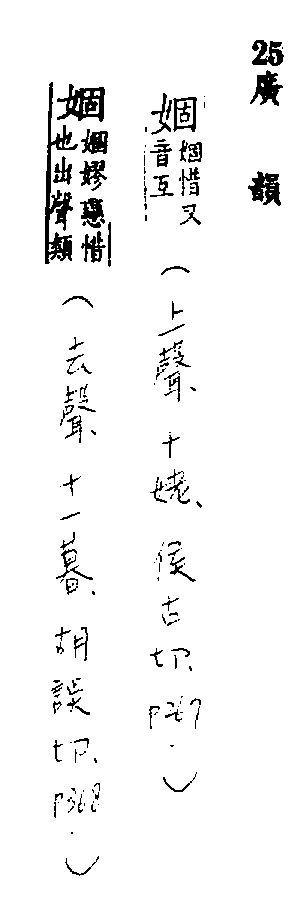 25廣韻
婟婟惜又音互（上聲、十姥、侯古切、p267.）
婟婟嫪戀惜也出聲類（去聲、十一暮、胡誤切、p368.）